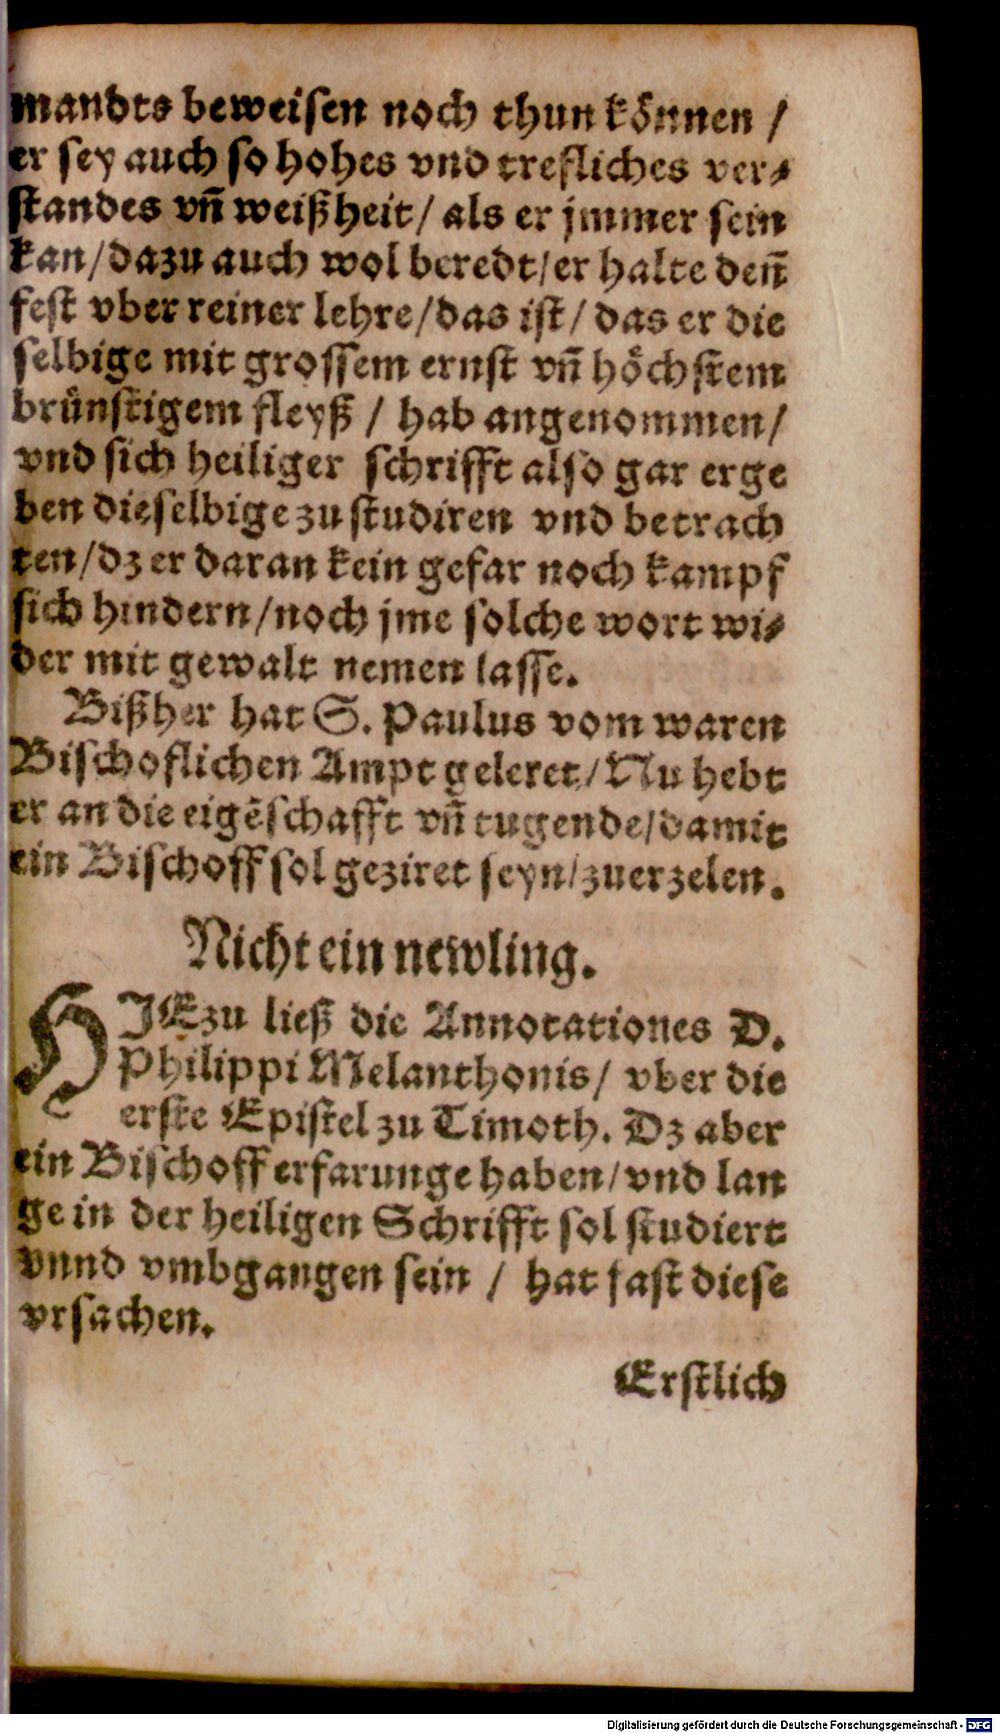 mandts beweisen noch thun können /
er sey auch so hohes vnd trefliches ver⸗
standes vñ weißheit / als er jmmer sein
kan / dazu auch wol beredt / er halte deñ
fest vber reiner lehre / das ist / das er die
selbige mit grossem ernst vñ höchstem
brünstigem fleyß / hab angenommen /
vnd sich heiliger schrifft also gar erge
ben dieselbige zu studiren vnd betrach
ten / dz er daran kein gefar noch kampf
sich hindern / noch jme solche wort wi⸗
der mit gewalt nemen lasse.
Bißher hat S. Paulus vom waren
Bischoflichen Ampt geleret / Nu hebt
er an die eigẽschafft vñ tugende / damit
ein Bischoff sol geziret seyn / zuerzelen.
Nicht ein newling.
HJEzu ließ die Annotationes D.
Philippi Melanthonis / vber die
erste Epistel zu Timoth. Dz aber
ein Bischoff erfarunge haben / vnd lan
ge in der heiligen Schrifft sol studiert
vnnd vmbgangen sein / hat fast diese
vrsachen.
Erstlich
Digitalisierung gefördert durch die Deutsche Forschungsgemeinschaft - DFG